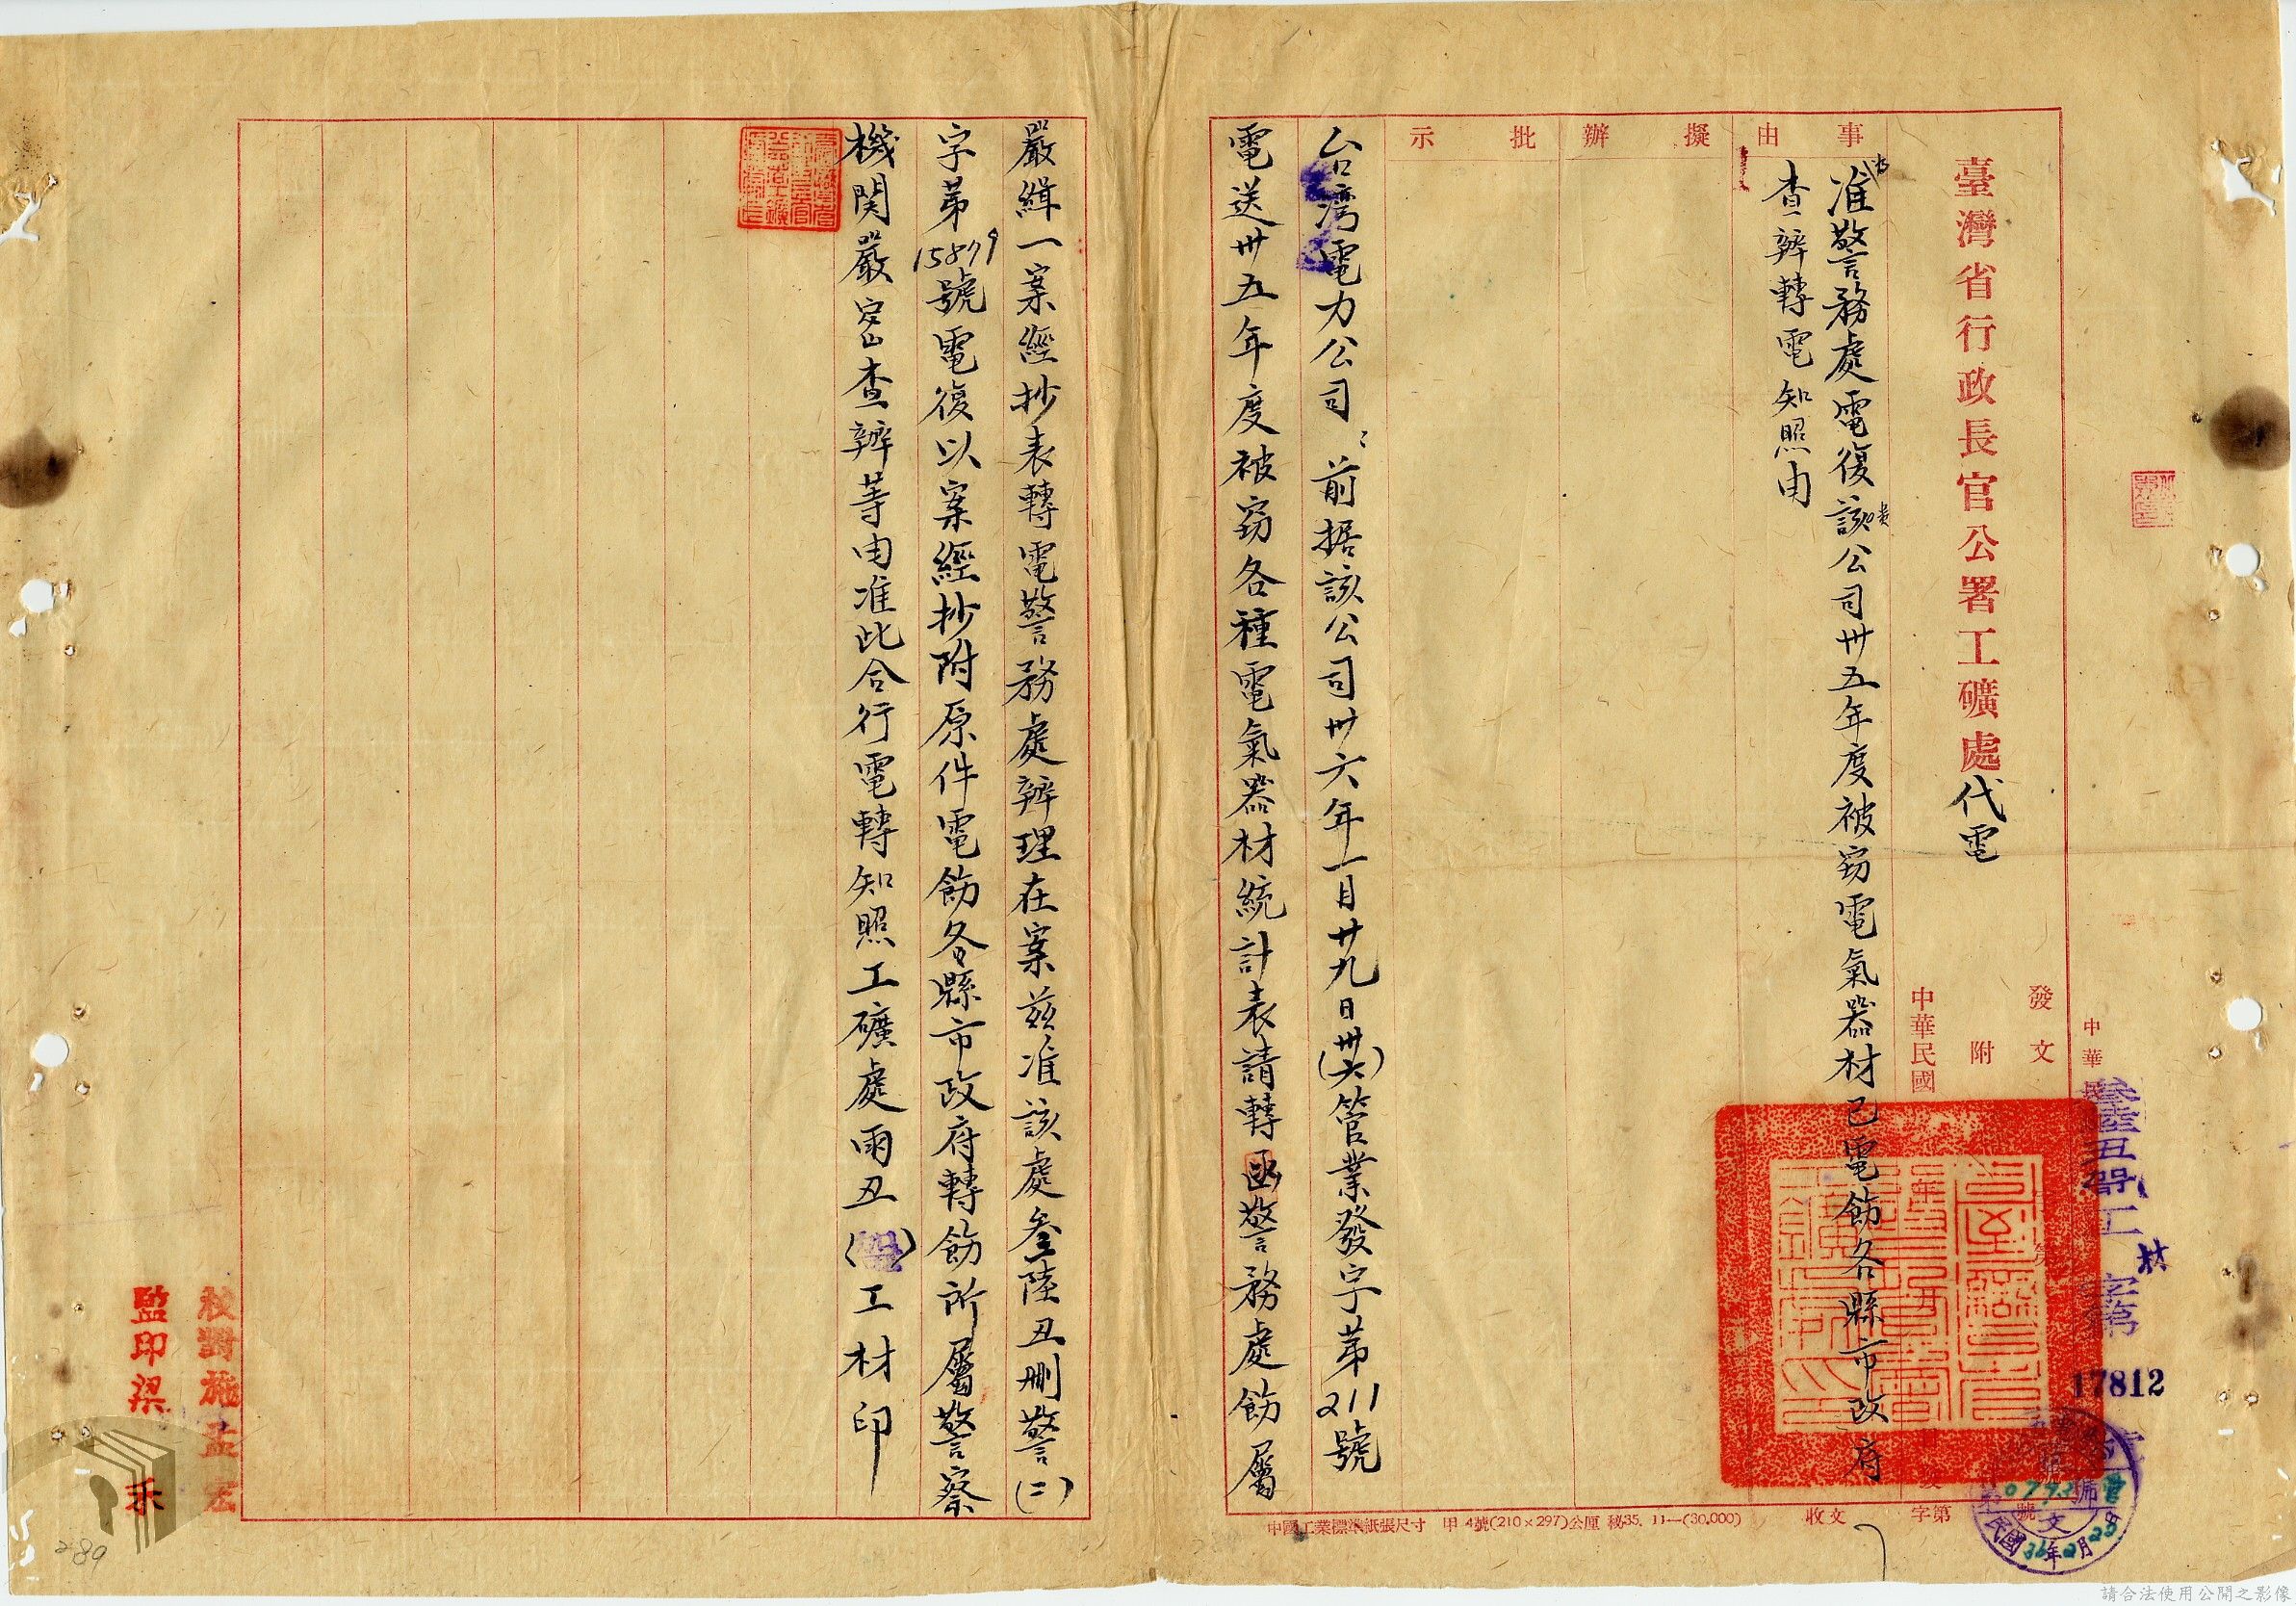 臺灣省行政長官公署工礦處代電
事由
擬辦
批示
准警務處電復該公司卅五年度被窃電氣器材已電飭各縣市政府
貴
查辦轉電知照由
發文
附
中華民國
中華民
參陸丑
工
材
字第
17812
台湾電力公司：前据該公司卅六年一月廿九日(卅六)管業發字第211號
電送卅五年度被窃各種電氣器材統計表請轉函警務處飭屬
嚴緝一案經抄表轉電警務處辦理在案茲准該處叁陸丑刪警(二)
字第15879號電復以案經抄附原件電飭各縣市政府轉飭所屬警察
機関嚴密查辦等由准此合行電轉知照工礦處雨丑( )工材印
校對施孟宏
監印梁禾
中國工業標準紙張尺寸 甲4號(210×297)公厘 秘35. 11—(30,000)
收文
字第
號
民國36年2月28日
289
請合法使用公開之影像